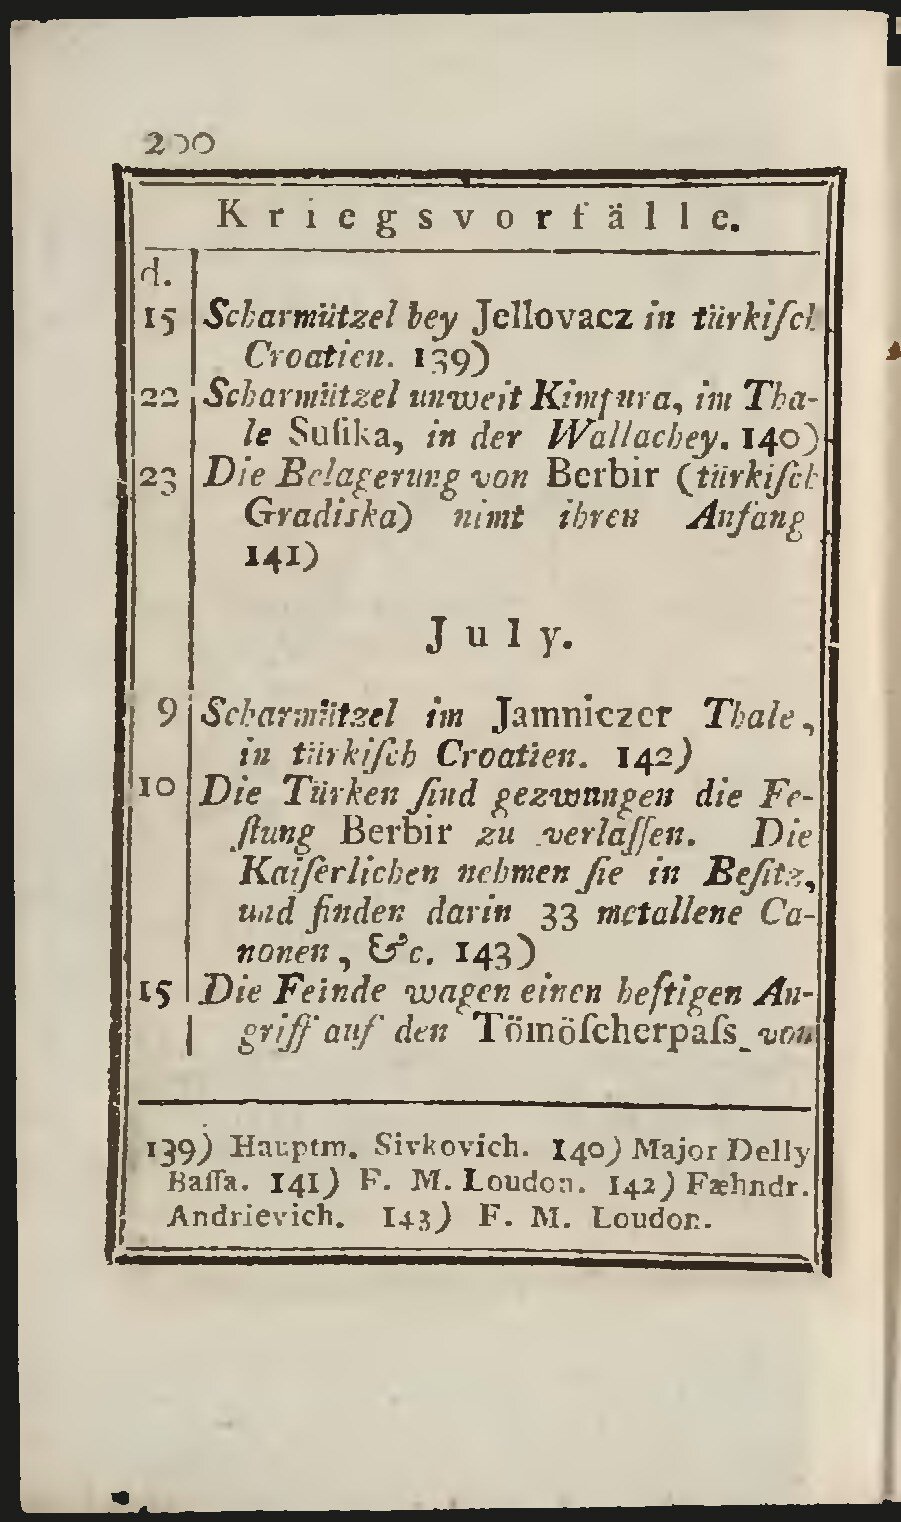 200
Kriegsvorfälle.
d.
15 Scharmützel bey Jellovacz in türkiſch
Croatien. 139)
22 Scharmützel unweit Kimpura, im Tha-
le Suſika, in der Wallachey. 140)
23 Die Belagerung von Berbir (türkiſch
Gradiska) nimt ihren Anfang
141)
July.
9 Scharmützel im Jamniczer Thale,
in türkiſch Croatien. 142)
10 Die Türken ſind gezwungen die Fe-
ſtung Berbir zu verlaſſen. Die
Kaiſerlichen nehmen ſie in Beſitz,
und finden darin 33 metallene Ca-
nonen, &c. 143)
15 Die Feinde wagen einen heftigen An-
griff auf den Tömöſcherpaſs von
139) Hauptm. Sivkovich. 140) Major Delly
Baſſa. 141) F. M. Loudon. 142) Fæhndr.
Andrievich. 143) F. M. Loudon.